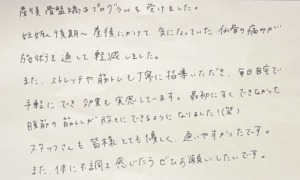 産後骨盤矯正プログラムを受けました。
妊娠後期〜産後にかけて気になっていた仙骨の痛みが
施術を通して軽減しました。
また、ストレッチや筋トレも丁寧に指導いただき、毎日自宅で
手軽にでき効果も実感しています。最初に全くできなかった
腹筋の筋トレが軽々できるようになりました!(笑)
スタッフさんも皆様とても優しく、通いやすかったです。
また、体に不調を感じたらぜひお願いしたいです。